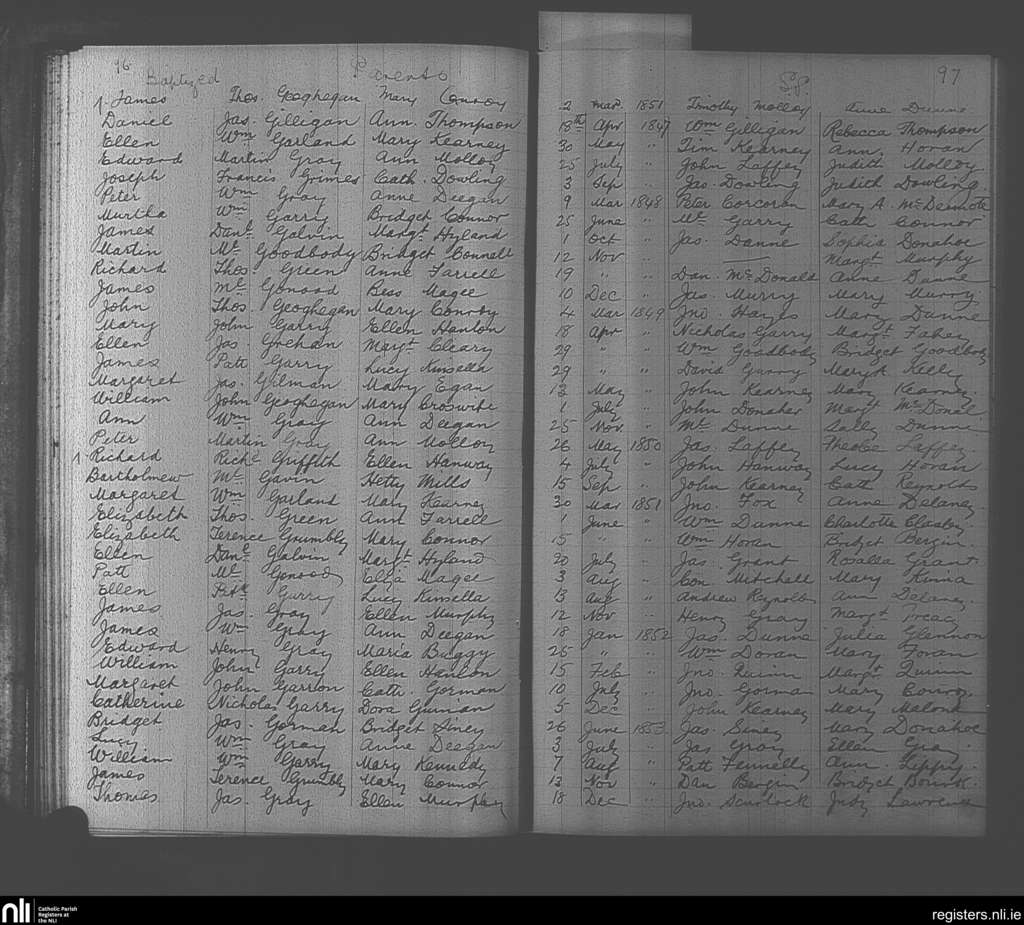 96 97
Baptized Parents Sp.
1. James Thos. Geoghegan Mary Conroy 2 Mar. 1851 Timothy Molloy Anne Dunne
Daniel Jas. Gilligan Ann. Thompson 18th Apr 1847 Wm Gilligan Rebecca Thompson
Ellen Wm Garland Mary Kearney 30 May " Tim Kearney Ann. Horan
Edward Martin Gray Ann Molloy 25 July " John Laffey Judith Molloy.
Joseph Francis Grimes Cath. Dowling 3 Sep " Jas. Dowling Judith Dowling.
Peter Wm Gray Anne Deegan 9 Mar 1848 Peter Corcoran Mary A. McDermote
Murtha Wm Garry Bridget Connor 25 June " Ml. Garry Cath Connor
James Danl. Galvin Margt. Hyland 1 Oct " Jas. Danne Sophia Donahoe
Martin Ml. Goodbody Bridget Connall 12 Nov " — Margt Murphy
Richard Thos. Green Anne Farrell 19 " " Dan. McDonald Anne Dunne
James Ml. Gonood Bess Magee 10 Dec " Jas. Murry Mary Murry
John Thos. Geoghegan Mary Conroy 4 Mar 1849 Jno. Hayes Mary Dunne
Mary John Garry Ellen Hanlon 18 Apr " Nicholas Garry Margt. Fahey
Ellen Jas. Grehan Margt. Cleary 29 " " Wm Goodbody Bridget Goodbody
James Patt Garry Lucy Kinsella 29 " " David Guerry Mary A Kelly
Margaret Jas. Gilman Mary Egan 13 May " John Kearney Mary Kearney
William John Geoghegan Mary Croswite 1 July " John Donaher Margt McDonal
Ann Wm Gray Ann Deegan 25 Nov " Ml. Dunne Sally Dunne
Peter Martin Gray Ann Molloy 26 May 1850 Jas. Laffey Laffey.
1. Richard Richd Griffith Ellen Hanway 4 July " John Hanway Lucy Horan
Bartholmew Ml. Gavin Hetty Mills 15 Sep " John Kearney Cath Reynolds
Margaret Wm Garland Mary Kearney 30 Mar 1851 Jno. Fox Anne Delaney
Elizabeth Thos. Green Ann Farrell 1 June " Wm Danne Charlotte
Elizabeth Terence Grumbly Mary Connor 15 " " Wm Horan Bridget Bergin
Ellen Danl Galvin Margt. Hyland 20 July " Jas. Grant Rosalia Grant
Patt Ml. Gonood Eliza Magee 3 Aug " Con Mitchell Mary
Ellen Patk Garry Lucy Kinsella 13 Aug " Andrew Reynolds Ann Delaney.
James Jas. Gray Ellen Murphy 12 Nov " Henry Gray Margt Treacy
James Wm Gray Ann Deegan 18 Jan 1852 Jas. Dunne Julia Glennon
Edward Henry Gray Maria Buggy 25 " " Wm Doran Mary Foran
William John Garry Ellen Hanlon 15 Feb " Jno. Quinn Margt Quinn
Margaret John Garron Cath. Gorman 10 July " Jno. Gorman Mary Conroy.
Catherine Nicholas Garry Dora Guinan 5 Dec " John Kearney Mary Malone
Bridget Jas. Gorman Bridget Siney 26 June 1853 Jas. Siney Mary Donahoe
Lucy Wm Gray Anne Deegan 3 July " Jas Gray Ellen Gray
William Wm Garry Mary Kennedy 7 Aug " Patt Fennelly Ann
James Terence Grumbly Mary Connor 13 Nov " Dan Bergin Bridget Bourk.
Thomas Jas. Gray Ellen Murphy 18 Dec " Jno. Scurlock Judy Lawrence
nli Catholic Parish
Registers at
the NLI
registers.nli.ie